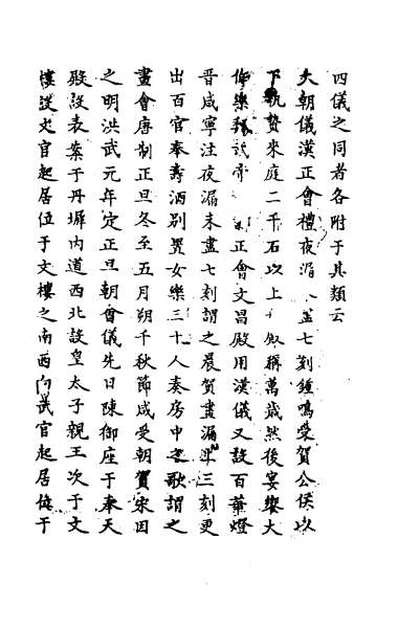 四儀之同者各附于其類云
大朝儀漢正會禮夜漏盡七刻鍾鳴受賀公侯以
下執贄來庭二千石以上殿稱萬歲然後宴饗大
作樂帝正會文昌殿用漢儀又設百華燈
晉咸寧注夜漏未盡七刻謂之晨賀晝漏上三刻更
出百官奉壽酒別置女樂三十人奏房中之歌謂之
晝會唐制正旦冬至五月朔千秋節咸受朝賀宋因
之明洪武元年定正旦朝會儀先日陳御座于奉天
殿設表案于丹墀內道西北設皇太子親王次于文
樓設史官起居位于文樓之南西向武官起居位于